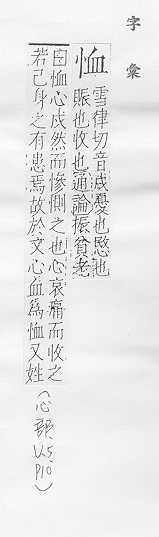 字彙
恤
雪律切音戌憂也愍也
賑也收也通論振貧老
曰恤心戌然而惨惻之也心哀痛而收之
若己身之有患焉故於文心血為恤又姓
(心部 V.5. P10)